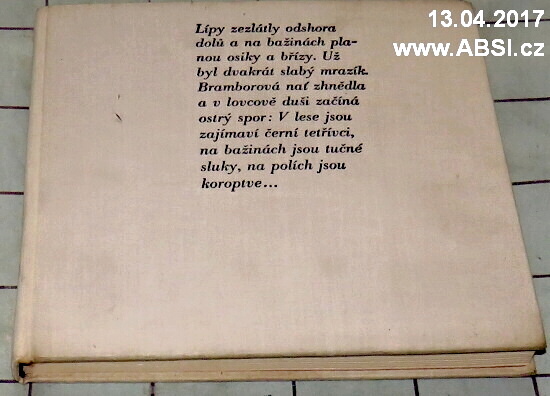 13.04.2017
www.ABSI.cz
Lípy zezlátly odshora
dolů a na bažinách pla-
nou osiky a břízy. Už
byl dvakrát slabý mrazík.
Bramborová nať zhnědla
a v lovcově duši začíná
ostrý spor: V lese jsou
zajímaví černí tetřívci,
na bažinách jsou tučné
sluky, na polích jsou
koroptve...